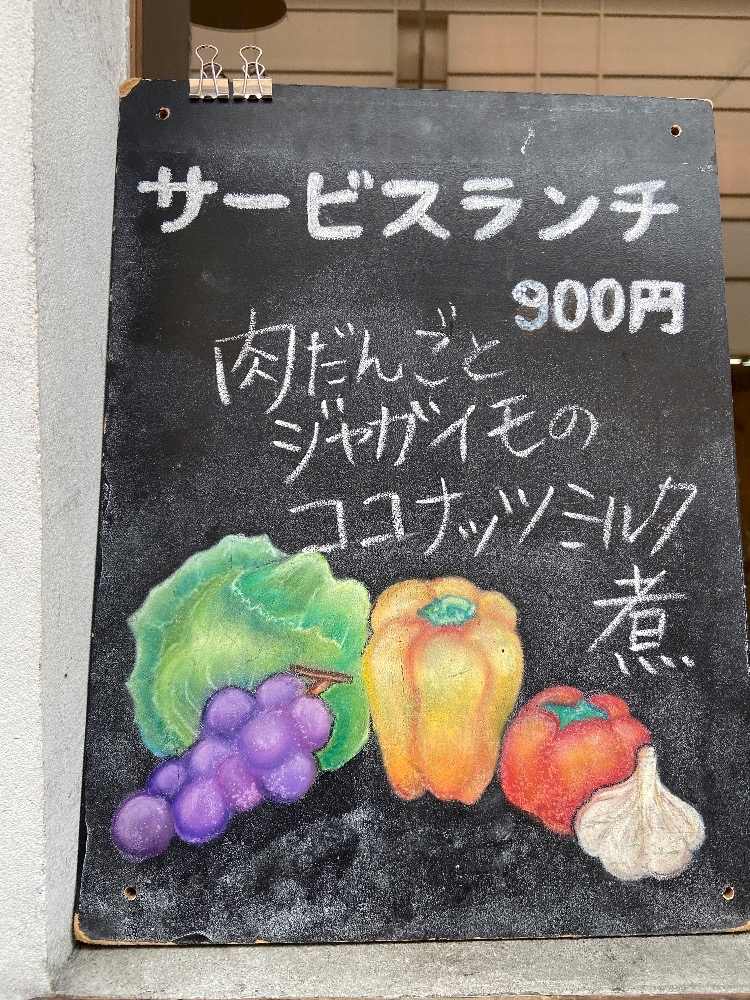 サービスランチ
900円
肉だんごと
ジャガイモの
ココナッツミルク
煮